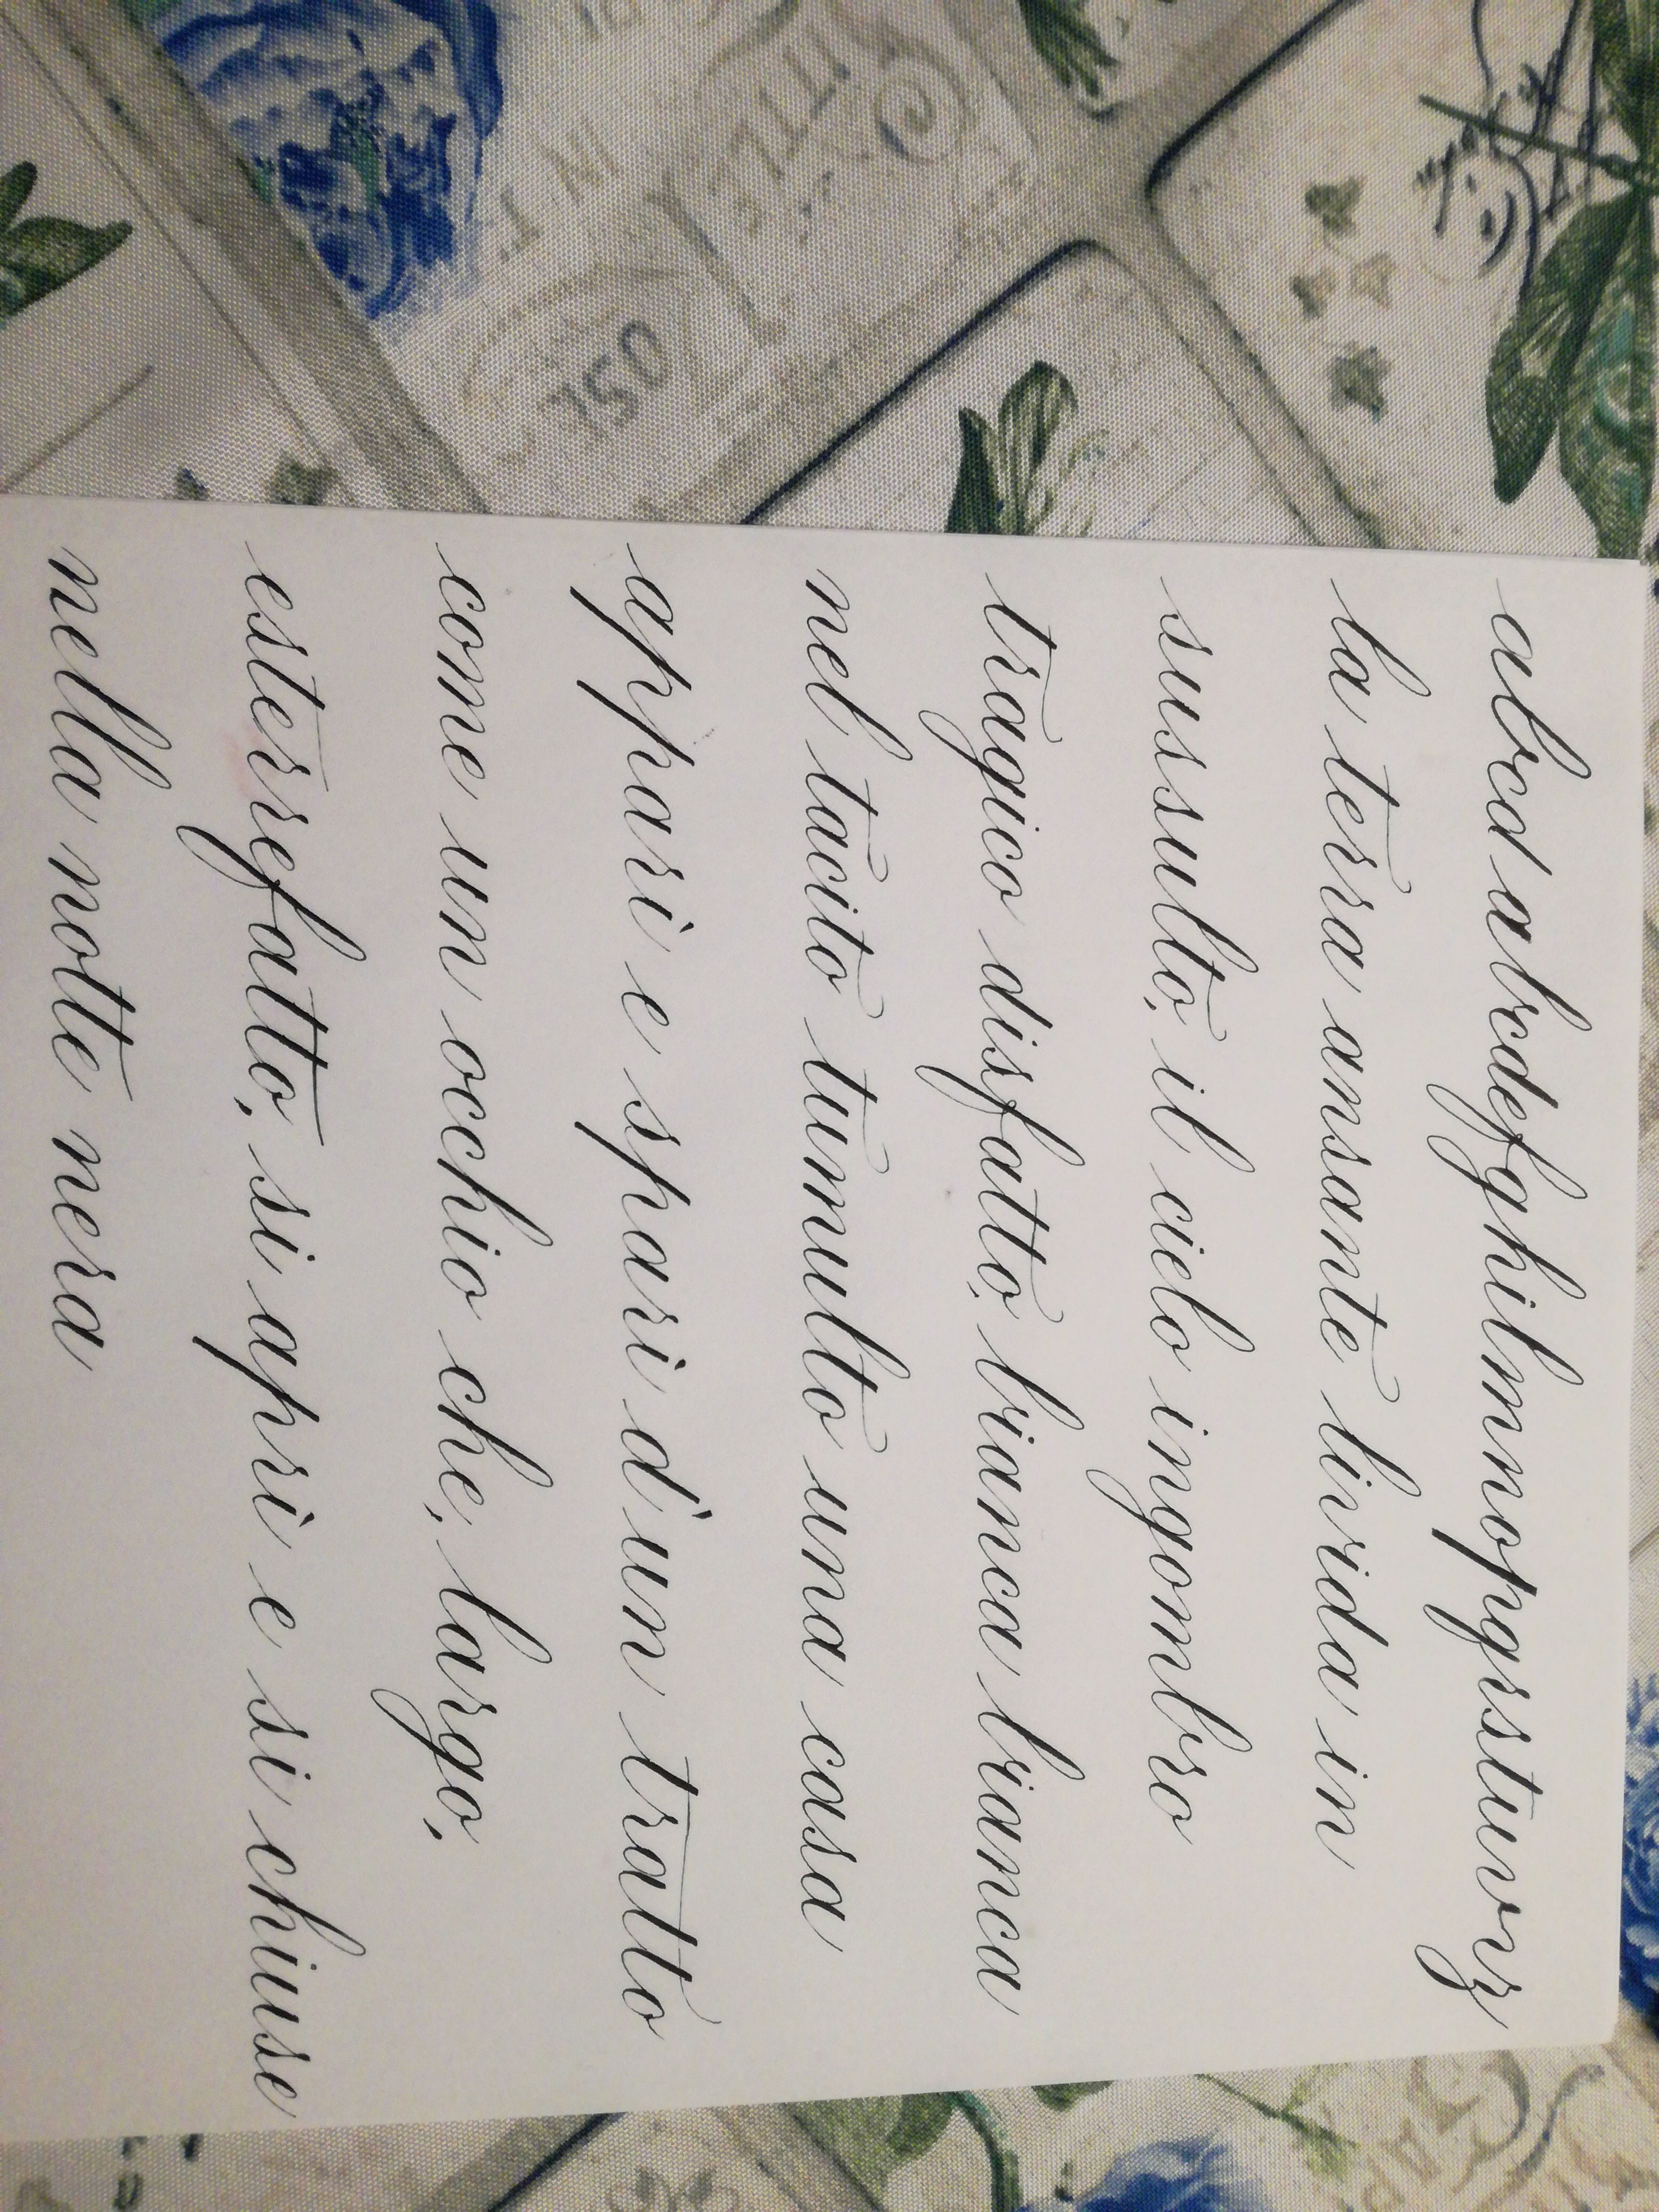 abcd abcdefghilmnopqrstuvz
la terra ansante livida in
sussulto, il cielo ingombro
tragico disfatto, bianca bianca
nel tacito tumulto una casa
apparì e sparì d'un tratto
come un occhio che, largo,
esterrefatto, si aprì e si chiuse
nella notte nera
OSL